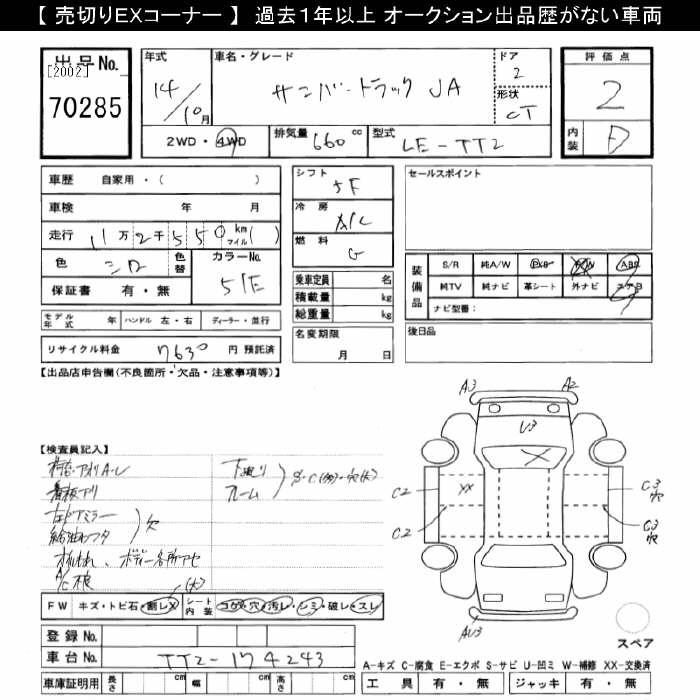 【 売切りEXコーナー 】 過去１年以上 オークション出品歴がない車両
出品No. [2002] 70285
年式 14/10月
車名・グレード サンバートラック JA
ドア 2
形状 CT
評価点 2
内装 D
2WD・4WD
排気量 660 cc
型式 LE-TT2
車歴 自家用・( )
車検 年 月
走行 11万2千550km マイル( )
色 シロ 色替 カラーNo. 51E
保証書 有・無
モデル年式 年 ハンドル 左・右 ディーラー・並行
リサイクル料金 7630 円 預託済
シフト 5F
冷房 A/C
燃料 G
乗車定員 名
積載量 kg
総重量 kg
名変期限 月 日
セールスポイント
装備品 S/R 純A/W ABS
純TV 純ナビ 革シート 外ナビ
ナビ型番:
後日品
【出品店申告欄(不良箇所・欠品・注意事項等)】
【検査員記入】
看板アリ
左ドアミラー
欠
下廻り
フレーム
ボディー各所アセ
A/C 不良
(大)
FW キズ・トビ石・割レX シート内装 コゲ・穴・汚レ・シミ・破レ・スレ
登録No.
車台No. TT2-174243
車庫証明用 長さ cm 幅 cm 高さ cm
A3 A2
U3
XX X
C2 C3 穴
C2 C3 穴
AU3
スペア
A-キズ C-腐食 E-エクボ S-サビ U-凹ミ W-補修 XX-交換済
工具 有・無 ジャッキ 有・無